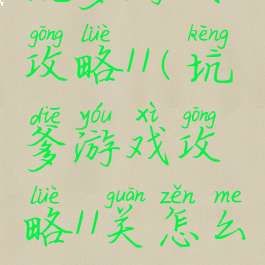 gōng lüè kēng
攻略11(坑
diē yóu xì gōng
爹游戏攻
lüè guān zěn me
略11关怎么